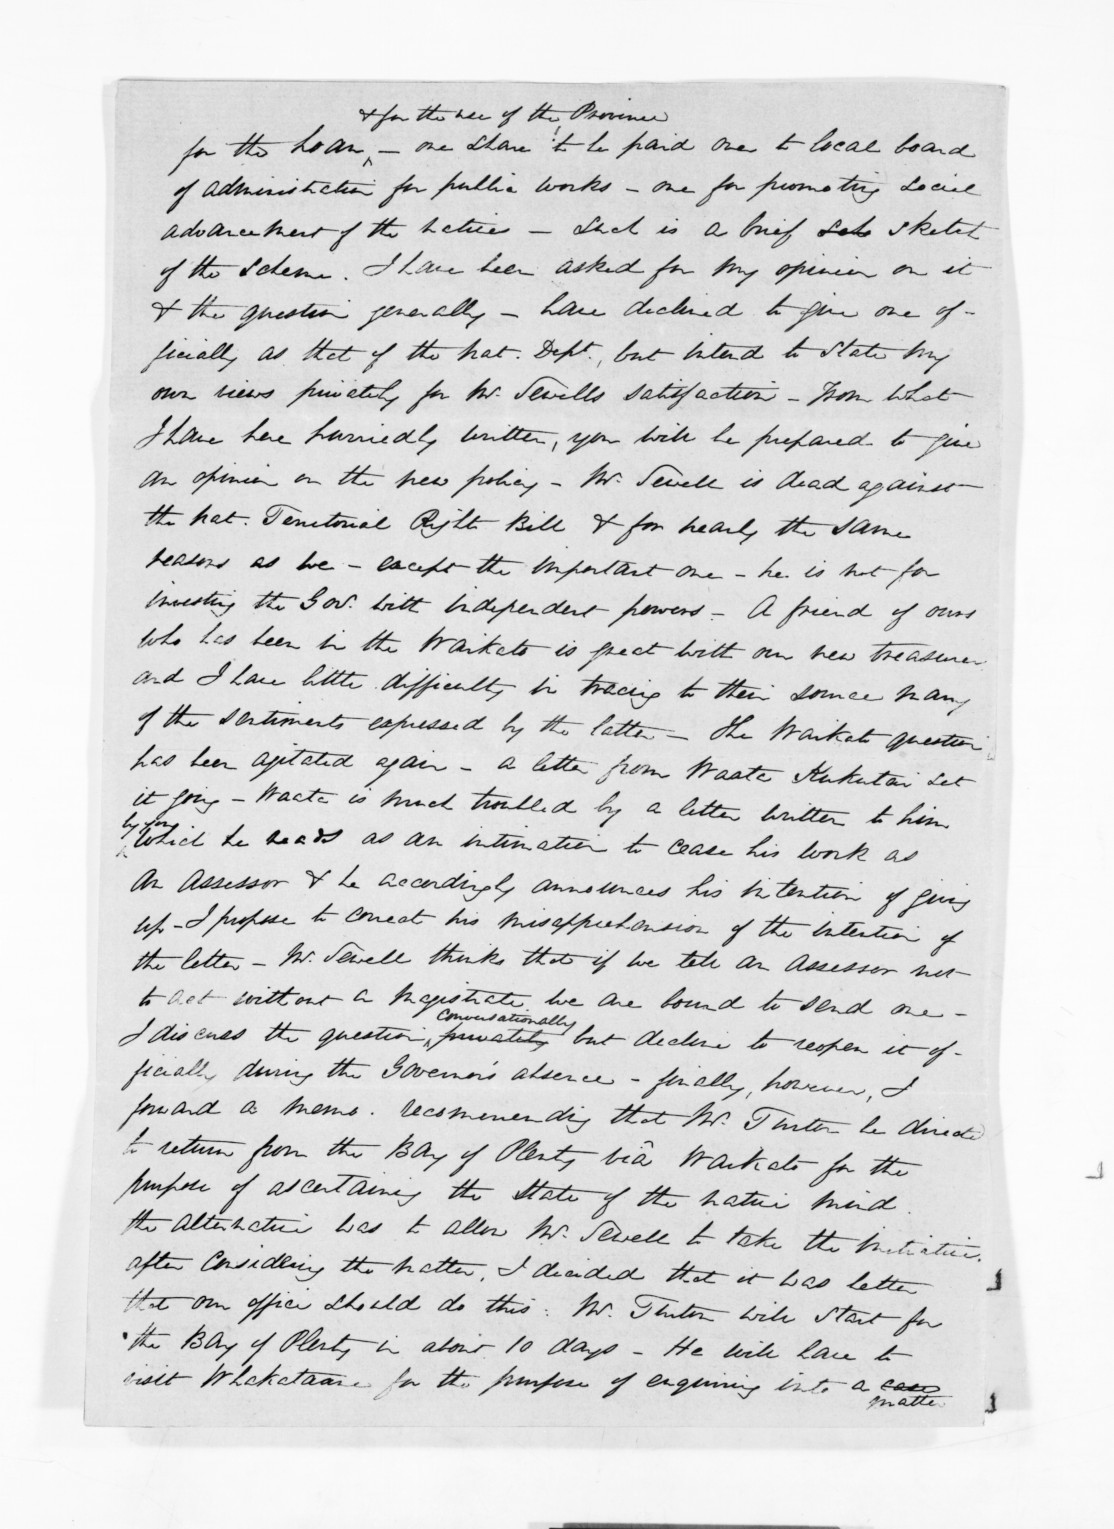 & for the use of the Province
for the Loan, – one share to be paid over to local board
of administration for public works – one for promoting social
advancement of the natives – Such is a brief sch sketch
of the scheme. I have been asked for my opinion on it
& the question generally – have declined to give one of-
ficially as that of the Nat. Dept., but intend to state my
own views privately for Mr. Sewells satisfaction – From what
I have here hurriedly written, you will be prepared to give
an opinion on the new policy – Mr. Sewell is dead against
the Nat. Territorial Right Bill & for nearly the same
reasons as we – except the important one – he is not for
investing the Gov. with independent powers – A friend of ours
who has been in the Waikato is great with our new treasurer
and I have little difficulty in tracing to their source many
of the sentiments expressed by the latter – The Waikato question
has been agitated again – a letter from Waata Kukutai set
it going – Waata is much troubled by a letter written to him
by you
which he reads as an intimation to cease his work as
an Assessor & he accordingly announces his intention of giving
up – I propose to correct his misapprehension of the intention of
the letter – Mr. Sewell thinks that if we tell an Assessor not
to act without a Magistrate we are bound to send one –
conversationally
I discuss the question, privately but decline to reopen it of-
ficially during the Governor's absence – finally, however, I
forward a memo. recommending that Mr. Turton be directed
to return from the Bay of Plenty viâ Waikato for the
purpose of ascertaining the state of the native mind.
the alternative was to allow Mr. Sewell to take the initiative.
after considering the matter, I decided that it was better
that our office should do this. Mr. Turton will start for
the Bay of Plenty in about 10 days – He will have to
visit Whakataane for the purpose of enquiring into a case
matter